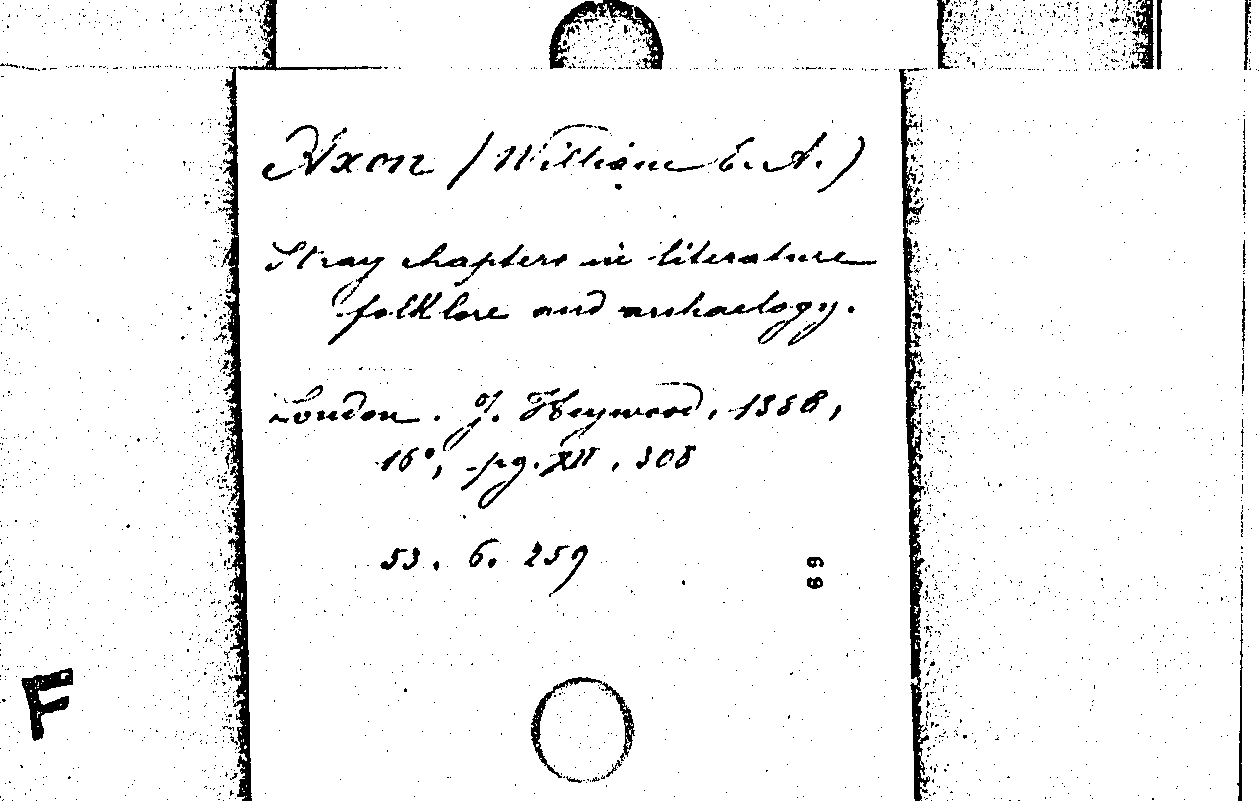 Axon (William E. A.)
Stray chapters in literature
folklore and archaelogy.
London. J. Heywood, 1888,
16°, pg. XII, 308
53. 6. 259
69
F